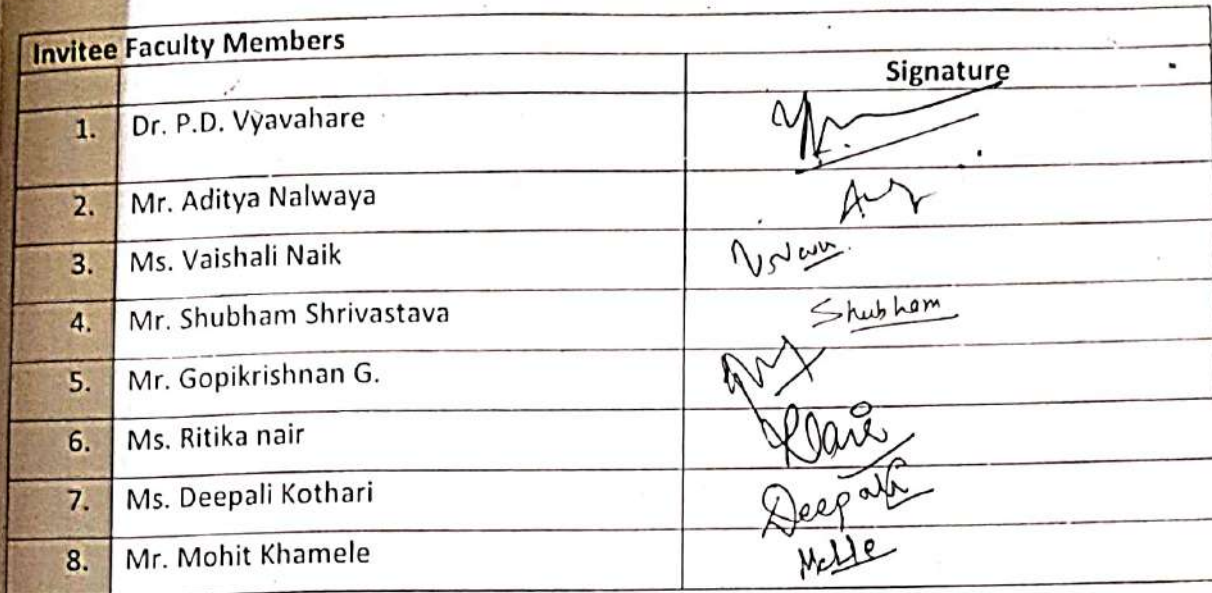 Invitee Faculty Members
Signature
1. Dr. P.D. Vyavahare
2. Mr. Aditya Nalwaya
3. Ms. Vaishali Naik
4. Mr. Shubham Shrivastava Shubham
5. Mr. Gopikrishnan G.
6. Ms. Ritika nair
7. Ms. Deepali Kothari Deepali
8. Mr. Mohit Khamele